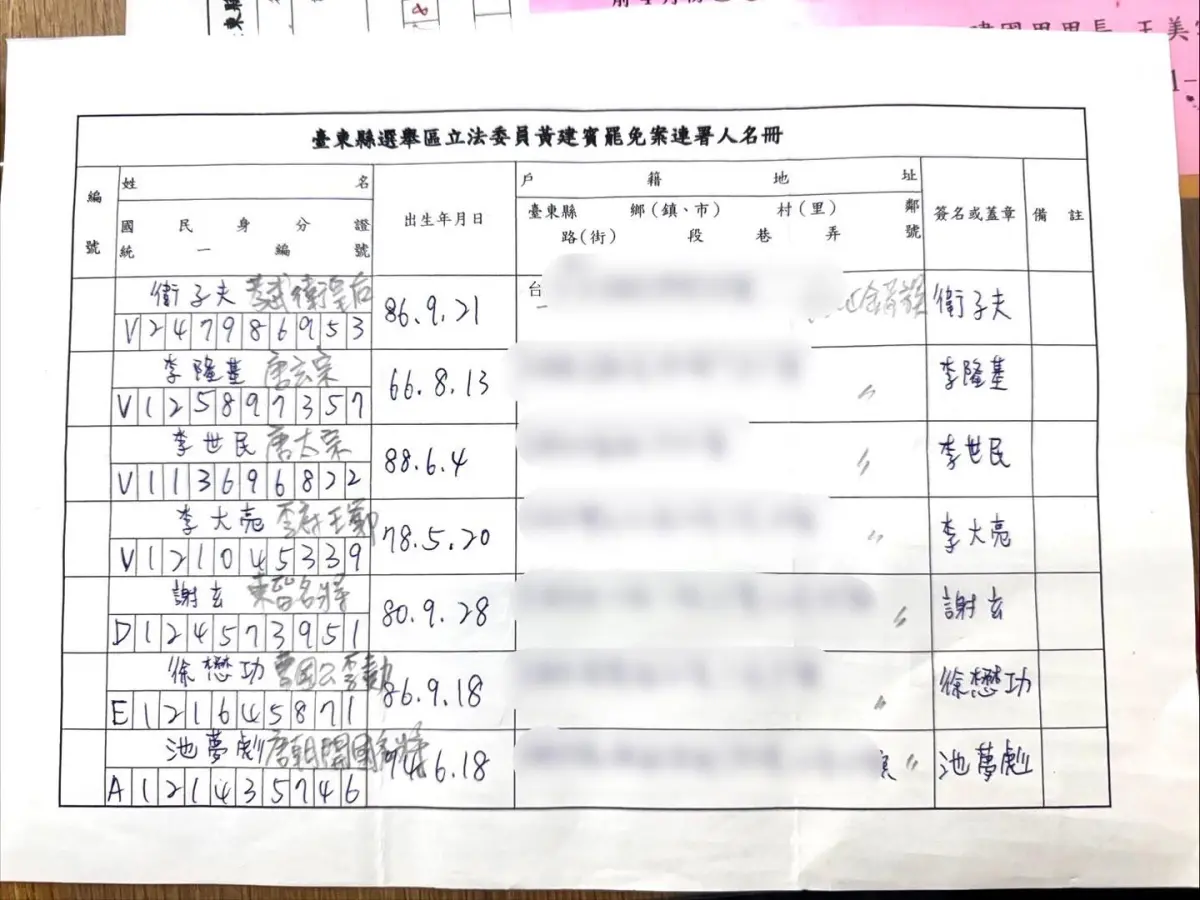 臺東縣選舉區立法委員黃建賓罷免案連署人名冊
編號
姓名
國民身分證
統一編號
出生年月日
戶籍地址
臺東縣 鄉(鎮、市) 村(里) 鄰
路(街) 段 巷 弄 號
簽名或蓋章
備註
衛子夫 孝武衛皇后
V247986953
86.9.21
台
衛子夫
李隆基 唐玄宗
V125897357
66.8.13
〃
李隆基
李世民 唐太宗
V113696822
88.6.4
〃
李世民
李大亮
V121045339
78.5.20
〃
李大亮
謝玄 東晉名將
D124573951
80.9.28
〃
謝玄
徐懋功
E121645871
86.9.18
〃
徐懋功
池夢彪 唐朝開國名將
A121435746
6.18
〃
池夢彪